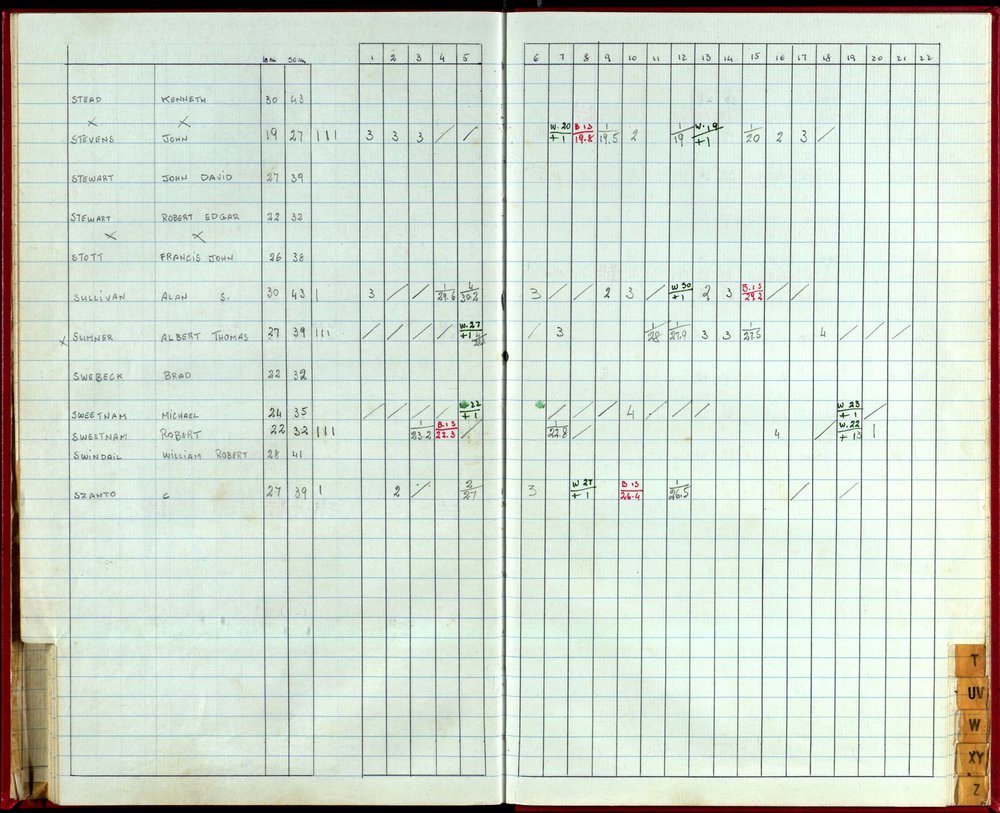 6m 50m 1 2 3 4 5 6 7 8 9 10 11 12 13 14 15 16 17 18 19 20 21 22
STEAD KENNETH 30 43
x x
STEVENS JOHN 19 27 111 3 3 3 / / W.20/+1 B.1S/19.8 1/19.5 2 1/19 W.19/+1 1/20 2 3 /
STEWART JOHN DAVID 27 39
STEWART ROBERT EDGAR 22 32
x x
STOTT FRANCIS JOHN 26 38
SULLIVAN ALAN S. 30 43 1 3 / / 1/29.6 4/30.2 3 / / 2 3 / W 30/+1 2 3 B.1S/29.2 / /
x SUMNER ALBERT THOMAS 27 39 111 / / / / W.27/+1 / 3 1/28 1/27.9 3 3 1/27.5 4 / / /
SWEBECK BRAD 22 32
SWEETNAM MICHAEL 24 35 / / / / W.22/+1 / / / 4 / / / W.23/+1 /
SWEETNAM ROBERT 22 32 111 1/23.2 B.1S/22.3 / 1/22.8 / 4 / W.22/+1 1
SWINDAIL WILLIAM ROBERT 28 41
SZANTO G 27 39 1 2 / 2/27 3 W 27/+1 B 1S/26.4 1/26.5 / /
T
UV
W
XY
Z